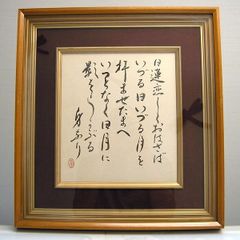 日蓮恋しとおはさば
いづる日いづる月を
拝ませたまへ
いつとなく日月に
影をうかぶる
身なり